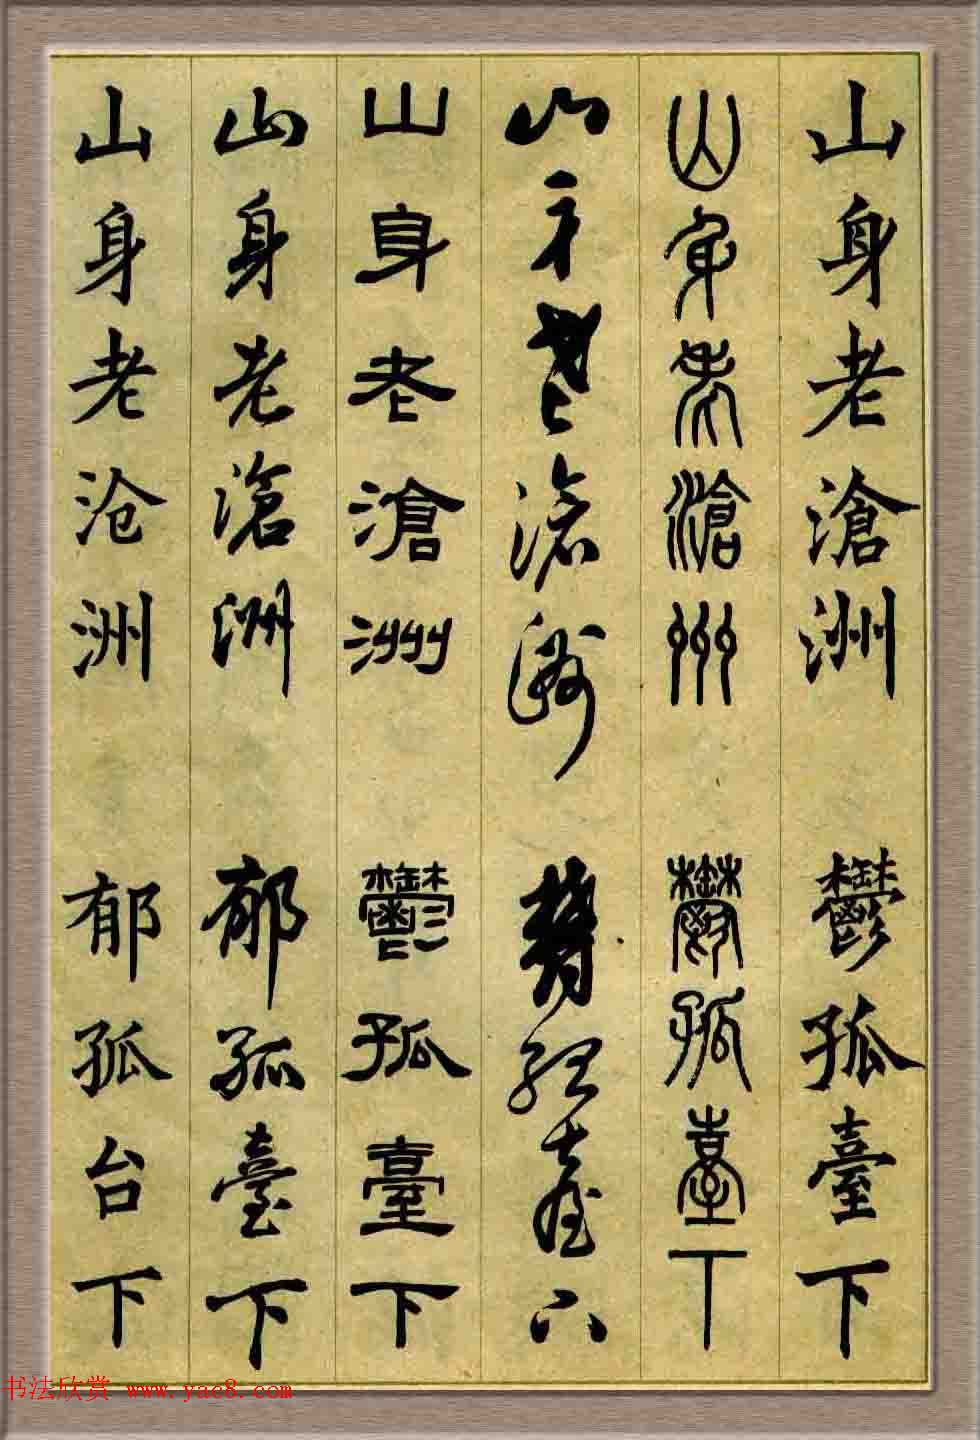 山身老滄洲 鬱孤臺下
山身老滄州 鬱孤臺下
山身老滄洲 鬱孤臺下
山身老滄洲 鬱孤臺下
山身老滄洲 郁孤臺下
山身老沧洲 郁孤台下
书法欣赏 www.yac8.com